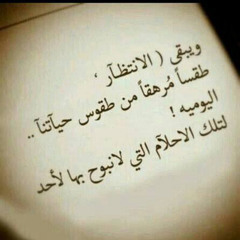 ويبقى ( الانتظآر ،
طقساً مُرهقاً من طقوس حيآتنآ ..
اليوميه !
لتلك الاحلآم التي لانبوح بها لأحد